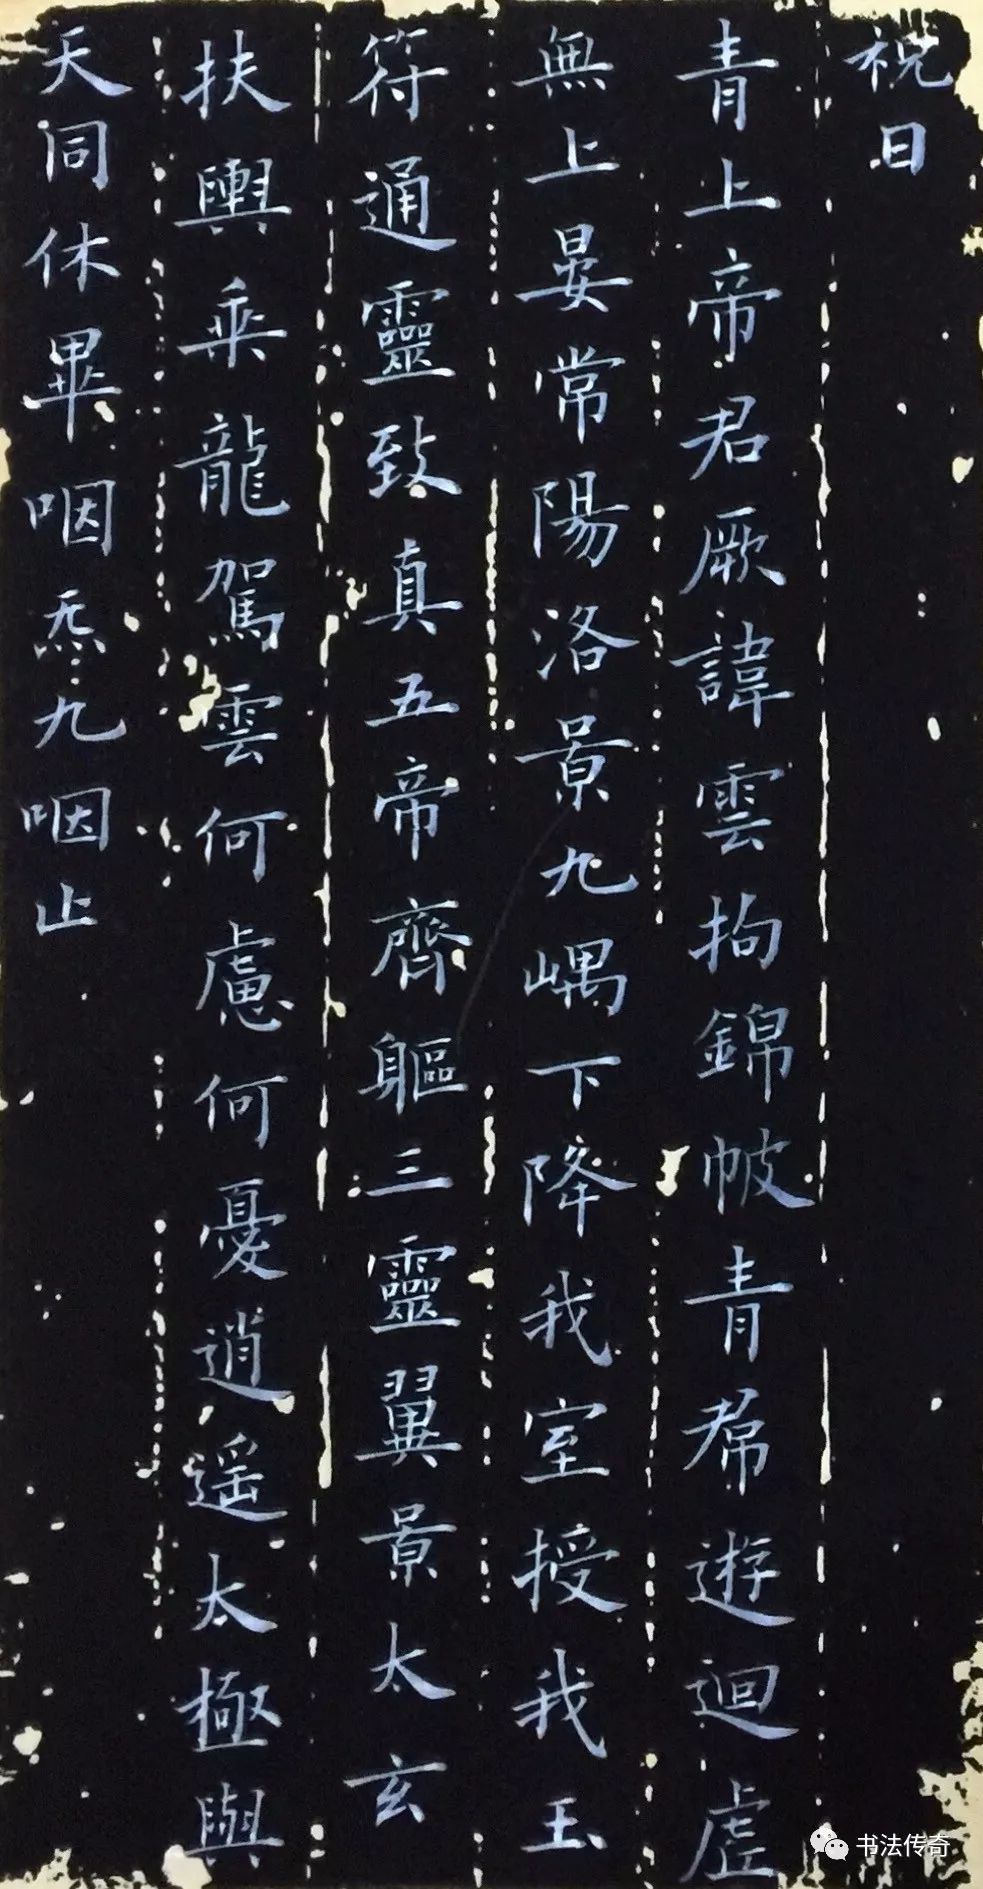 祝曰
青上帝君厥諱雲拘錦帔青帬遊迴虛
無上晏常陽洛景九嵎下降我室授我玉
符通靈致真五帝齊軀三靈翼景太玄
扶輿乘龍駕雲何慮何憂逍遙太極與
天同休畢咽炁九咽止
书法传奇